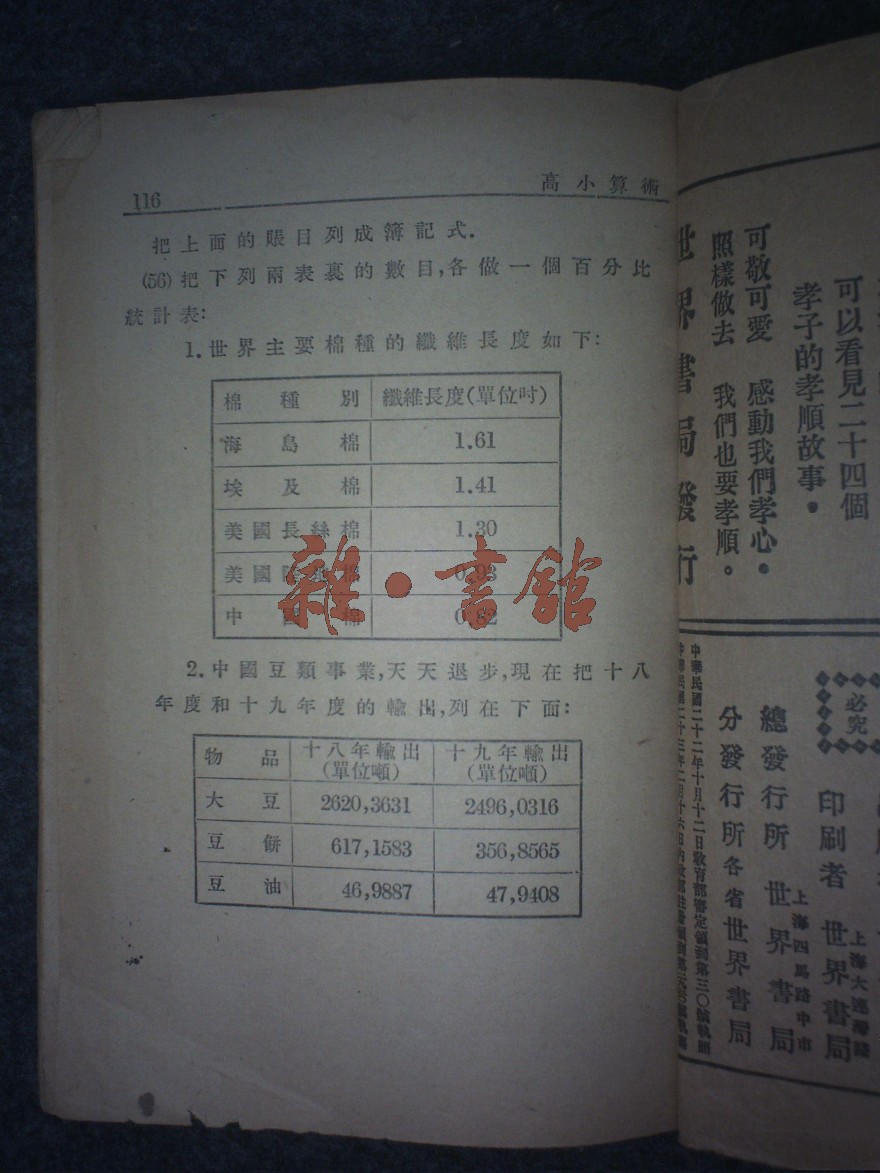 116
高小算術
把上面的賬目列成簿記式.
(56)把下列兩表裏的數目,各做一個百分比
統計表:
1.世界主要棉種的纖維長度如下:
棉種別 纖維長度(單位吋)
海島棉 1.61
埃及棉 1.41
美國長絲棉 1.30
美國
中國棉
2.中國豆類事業,天天退步,現在把十八
年度和十九年度的輸出,列在下面:
物品 十八年輸出(單位噸) 十九年輸出(單位噸)
大豆 2620,3631 2496,0316
豆餅 617,1583 356,8565
豆油 46,9887 47,9408
雜·書館
可以看見二十四個
孝子的孝順故事.
可敬可愛 感動我們孝心.
照樣做去 我們也要孝順。
世界書局發行
必究
印刷者 世界書局
上海大連灣路
總發行所 世界書局
上海四馬路中市
分發行所各省世界書局
中華民國二十二年十月十二日教育部審定領到第三〇號執照